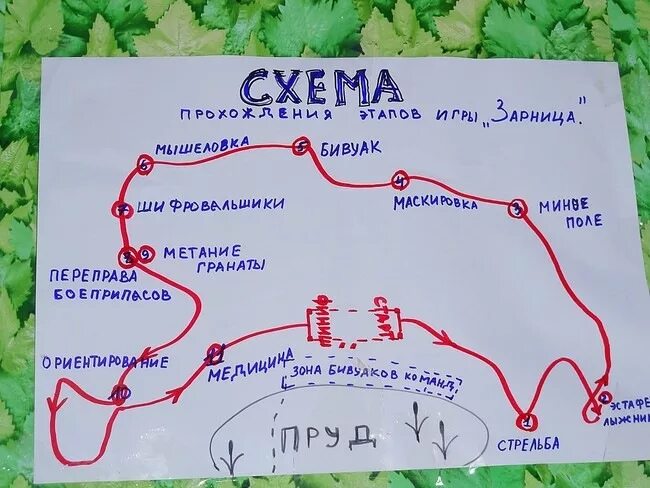 СХЕМА
ПРОХОЖДЕНИЯ ЭТАПОВ ИГРЫ „ЗАРНИЦА."
6 МЫШЕЛОВКА
5 БИВУАК
4
МАСКИРОВКА
3 МИНОЕ
ПОЛЕ
7 ШИФРОВАЛЬЩИКИ
8 9 МЕТАНИЕ
ГРАНАТЫ
ПЕРЕПРАВА
БОЕПРИПАСОВ
ФИНИШ
СТАРТ
11
МЕДИЦИНА
ОРИЕНТИРОВАНИЕ
10
ЗОНА БИВУАКОВ КОМАНД
ПРУД
1
СТРЕЛЬБА
2
ЭСТАФЕ
ЛЫЖНИ